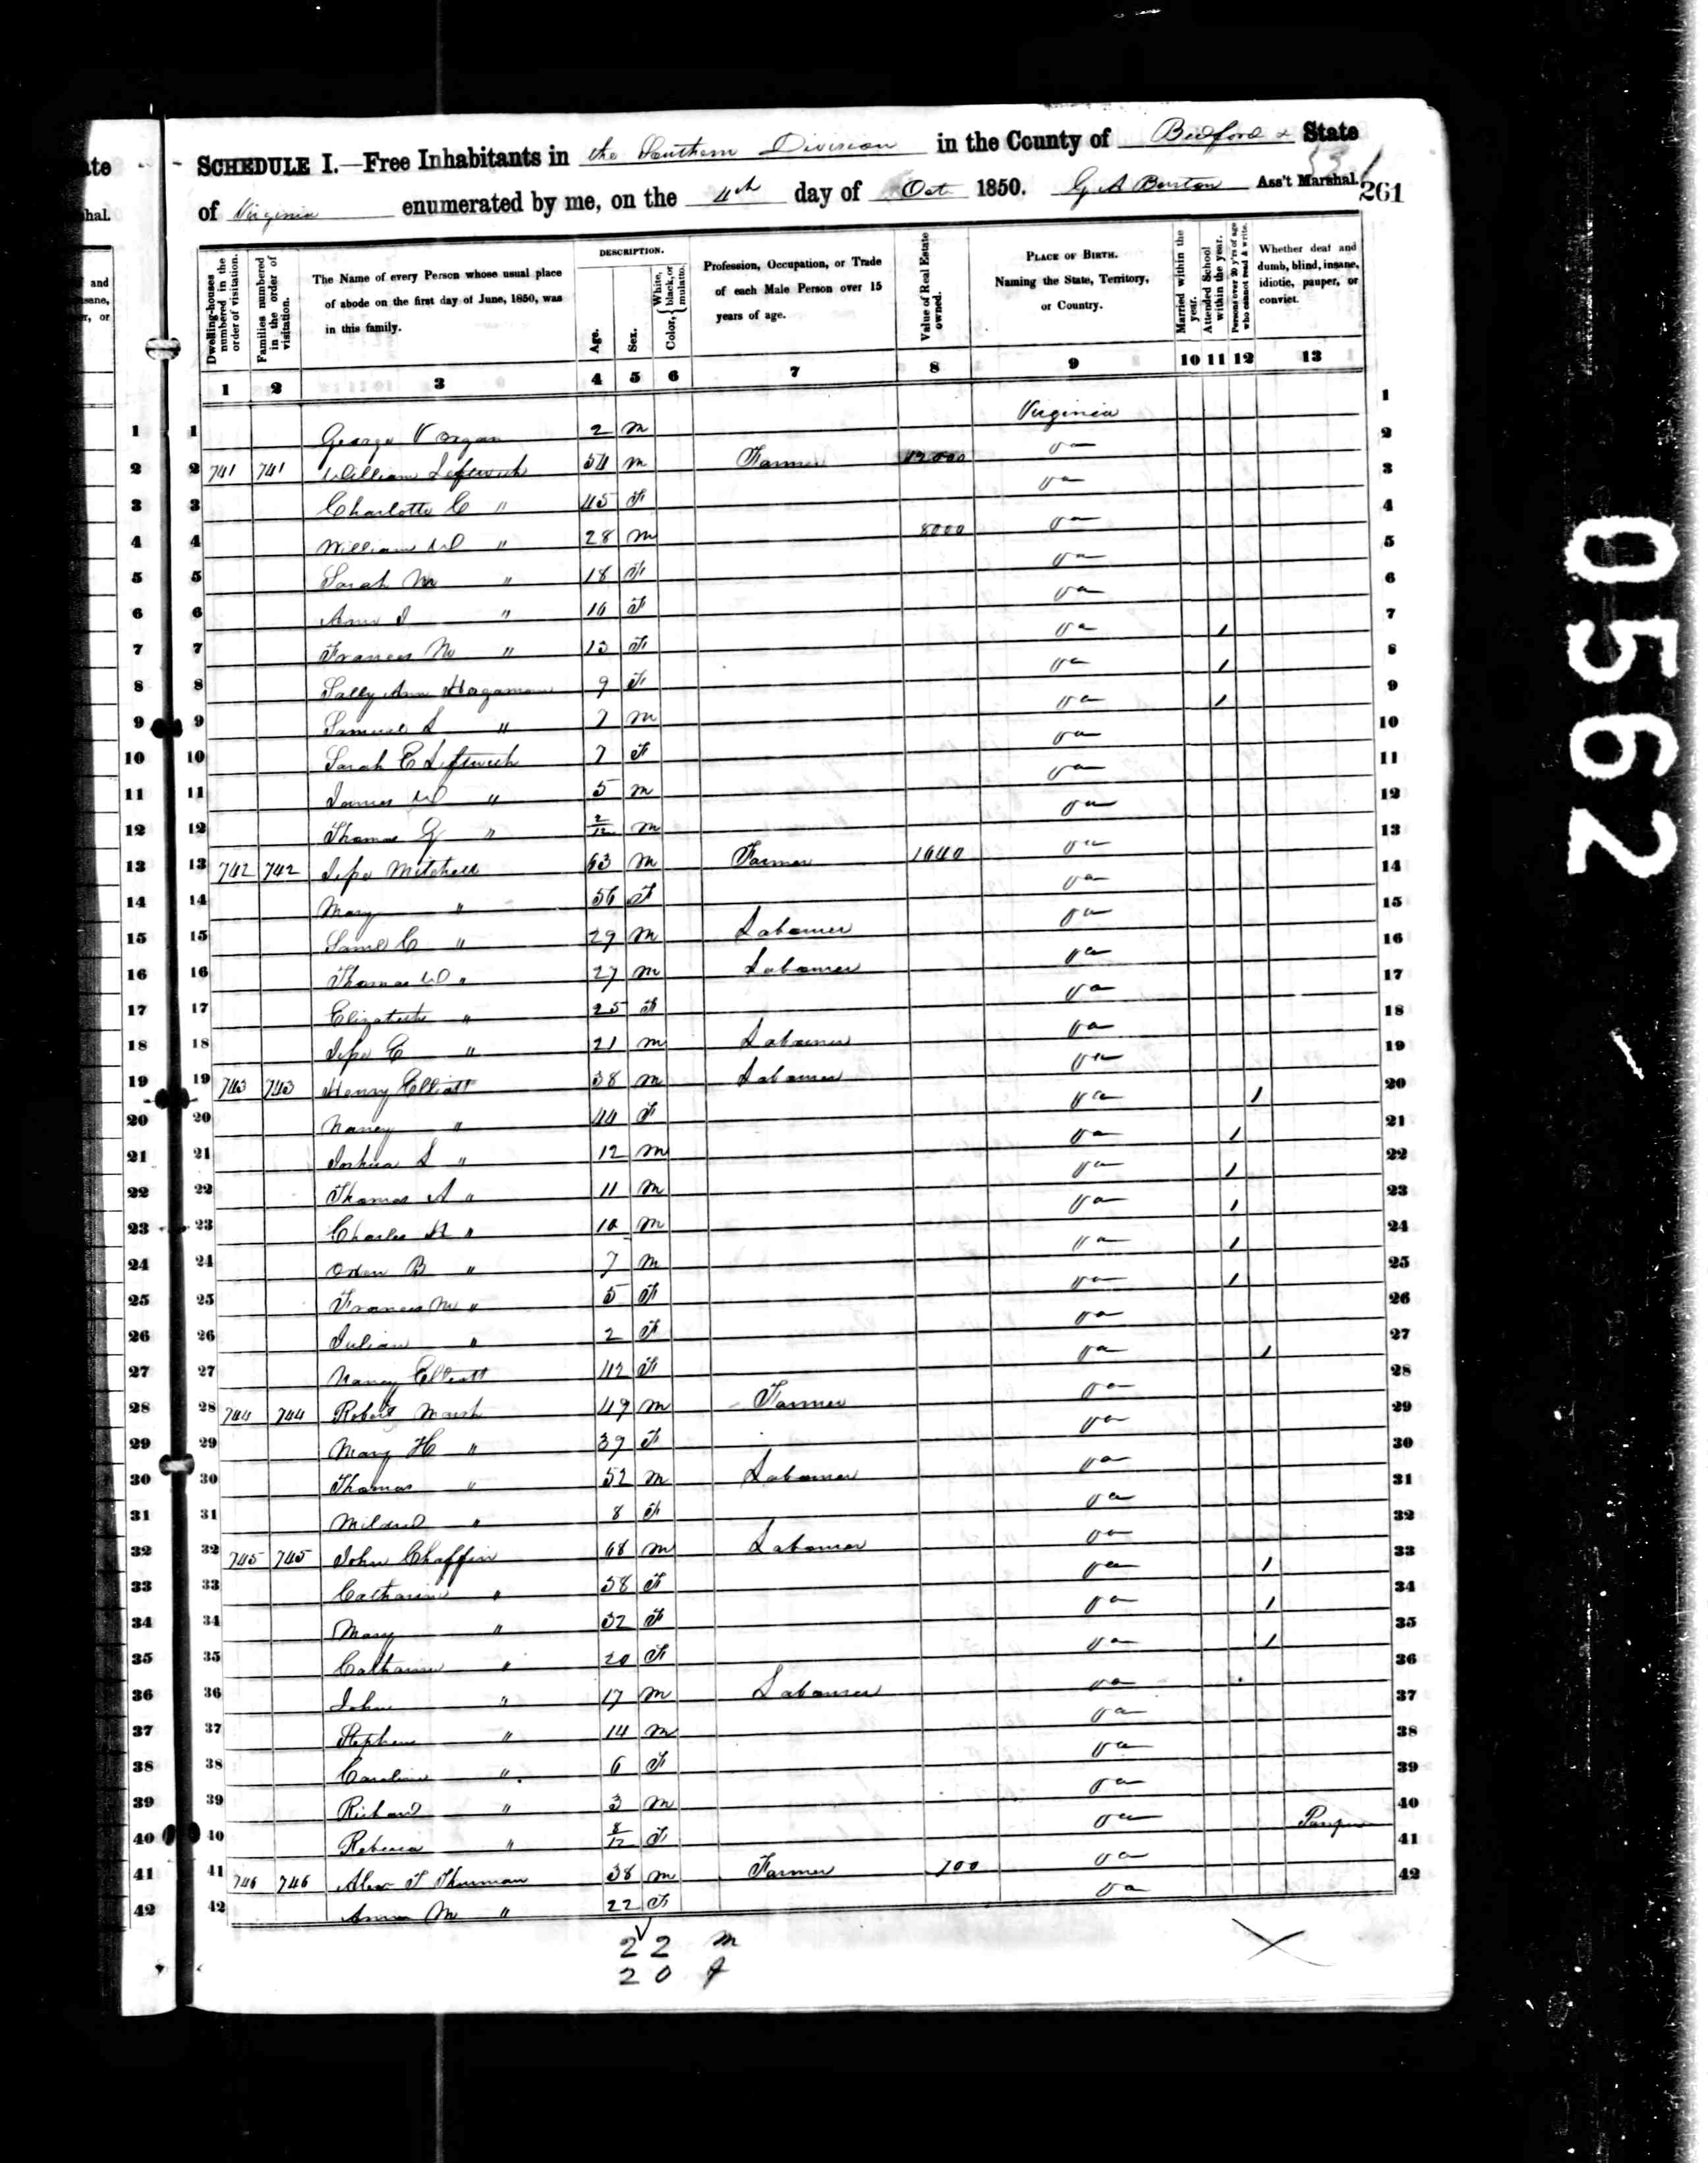 ate
hal.
SCHEDULE I.—Free Inhabitants in the Southern Division in the County of Bedford State
of Virginia enumerated by me, on the 4th day of Oct 1850. G A Burton Ass't Marshal. 261
and
sane,
r, or
Dwelling-houses numbered in the order of visitation.
Families numbered in the order of visitation.
The Name of every Person whose usual place of abode on the first day of June, 1850, was in this family.
DESCRIPTION.
Age.
Sex.
Color, { White, black, or mulatto.
Profession, Occupation, or Trade of each Male Person over 15 years of age.
Value of Real Estate owned.
PLACE OF BIRTH. Naming the State, Territory, or Country.
Married within the year.
Attended School within the year.
Persons over 20 y'rs of age who cannot read & write.
Whether deaf and dumb, blind, insane, idiotic, pauper, or convict.
1 2 3 4 5 6 7 8 9 10 11 12 13
1 1 George V 2 m Virginia 1
2 2 741 741 William Leftwich 54 m Farmer 12000 Va 2
3 3 Charlotte C " 45 F Va 3
4 4 William W " 28 m 8000 Va 4
5 5 Sarah M " 18 F Va 5
6 6 Ann " 16 F Va 6
7 7 Frances M " 13 F Va 1 7
8 8 Sally Ann 9 F Va 1 8
9 9 Samuel S " 7 m Va 1 9
10 10 Sarah C Leftwich 7 F Va 10
11 11 James W " 5 m Va 11
12 12 Thomas G " 2/12 m Va 12
13 13 742 742 Jesse Mitchell 63 m Farmer 1640 Va 13
14 14 Mary " 56 F Va 14
15 15 Saml C " 29 m Labourer Va 15
16 16 Thomas W " 27 m Labourer Va 16
17 17 Elizabeth " 25 F Va 17
18 18 Jesse C " 21 m Labourer Va 18
19 19 743 743 Henry Elliott 38 m Labourer Va 19
20 20 Nancy " 44 F Va 1 20
21 21 Joshua S " 12 m Va 1 21
22 22 Thomas A " 11 m Va 1 22
23 23 Charles H " 10 m Va 1 23
24 24 B " 7 m Va 1 24
25 25 Frances M " 5 F Va 1 25
26 26 Julian " 2 F Va 26
27 27 Nancy Elliott 42 F Va 1 27
28 28 744 744 Robert Marsh 49 m Farmer Va 28
29 29 Mary H " 39 F Va 29
30 30 Thomas " 52 m Labourer Va 30
31 31 Mildred " 8 F Va 31
32 32 745 745 John Chaffin 68 m Labourer Va 32
33 33 Catharine " 58 F Va 1 33
34 34 Mary " 32 F Va 1 34
35 35 Catharine " 20 F Va 1 35
36 36 John " 17 m Labourer Va 36
37 37 Stephen " 14 m Va 37
38 38 Caroline " 6 F Va 38
39 39 Richard " 3 m Va 39
40 40 Rebecca " 8/12 F Va Pauper 40
41 41 746 746 Alex T Thurman 38 m Farmer 700 Va 41
42 42 Anna M " 22 F Va 42
22 m
20 f
0562